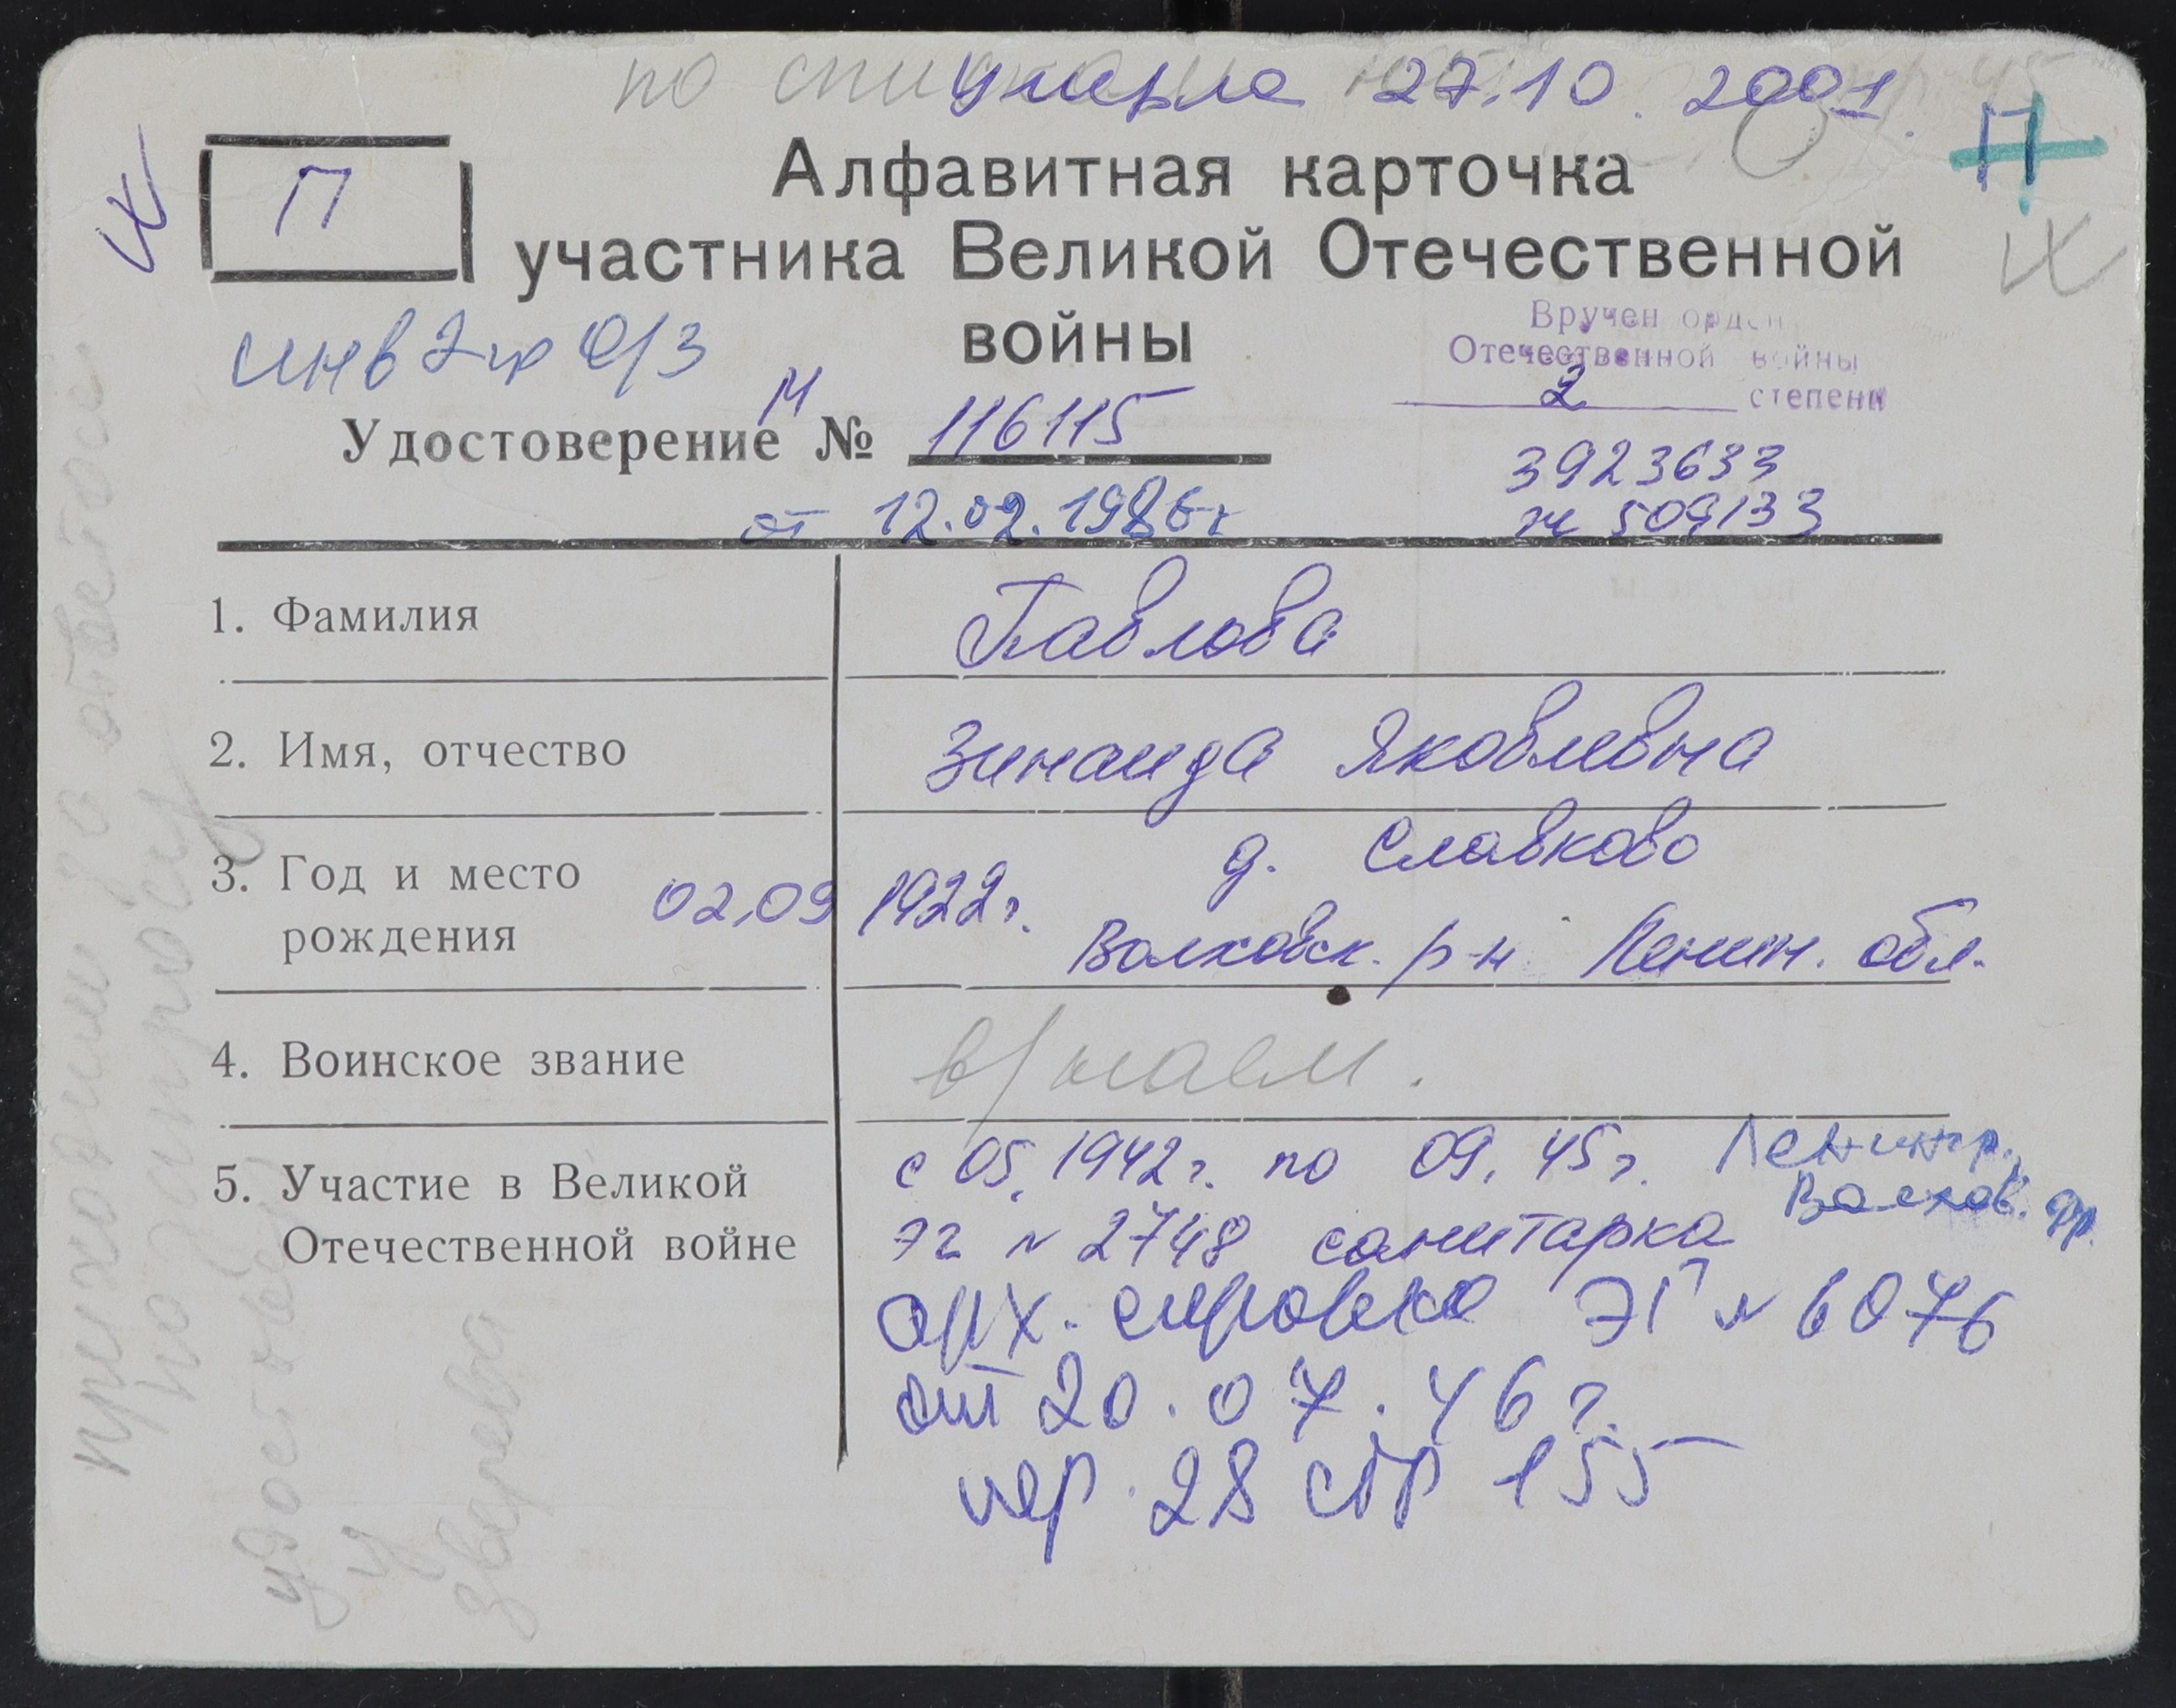 умерла 27.10.2001.
П
П
Алфавитная карточка
участника Великой Отечественной
войны
инв 2 гр О/З
Вручен орден
Отечественной войны
2 степени
М
Удостоверение № 116115
от 12.02.1986г
3923633
ж 509133
1. Фамилия Павлова
2. Имя, отчество Зинаида Яковлевна
3. Год и место рождения 02.09 1922г. д. Славково
Волховск. р-н Ленин. обл.
4. Воинское звание в/наем.
5. Участие в Великой Отечественной войне
с 05.1942г. по 09.45г. Ленингр.
Волхов. фр.
эг № 2748 санитарка
арх. справка ЭГ № 6076
от 20.07.46г.
пер. 28 стр 155
приходили за ответом
по запросу
удост.
у
Зверева